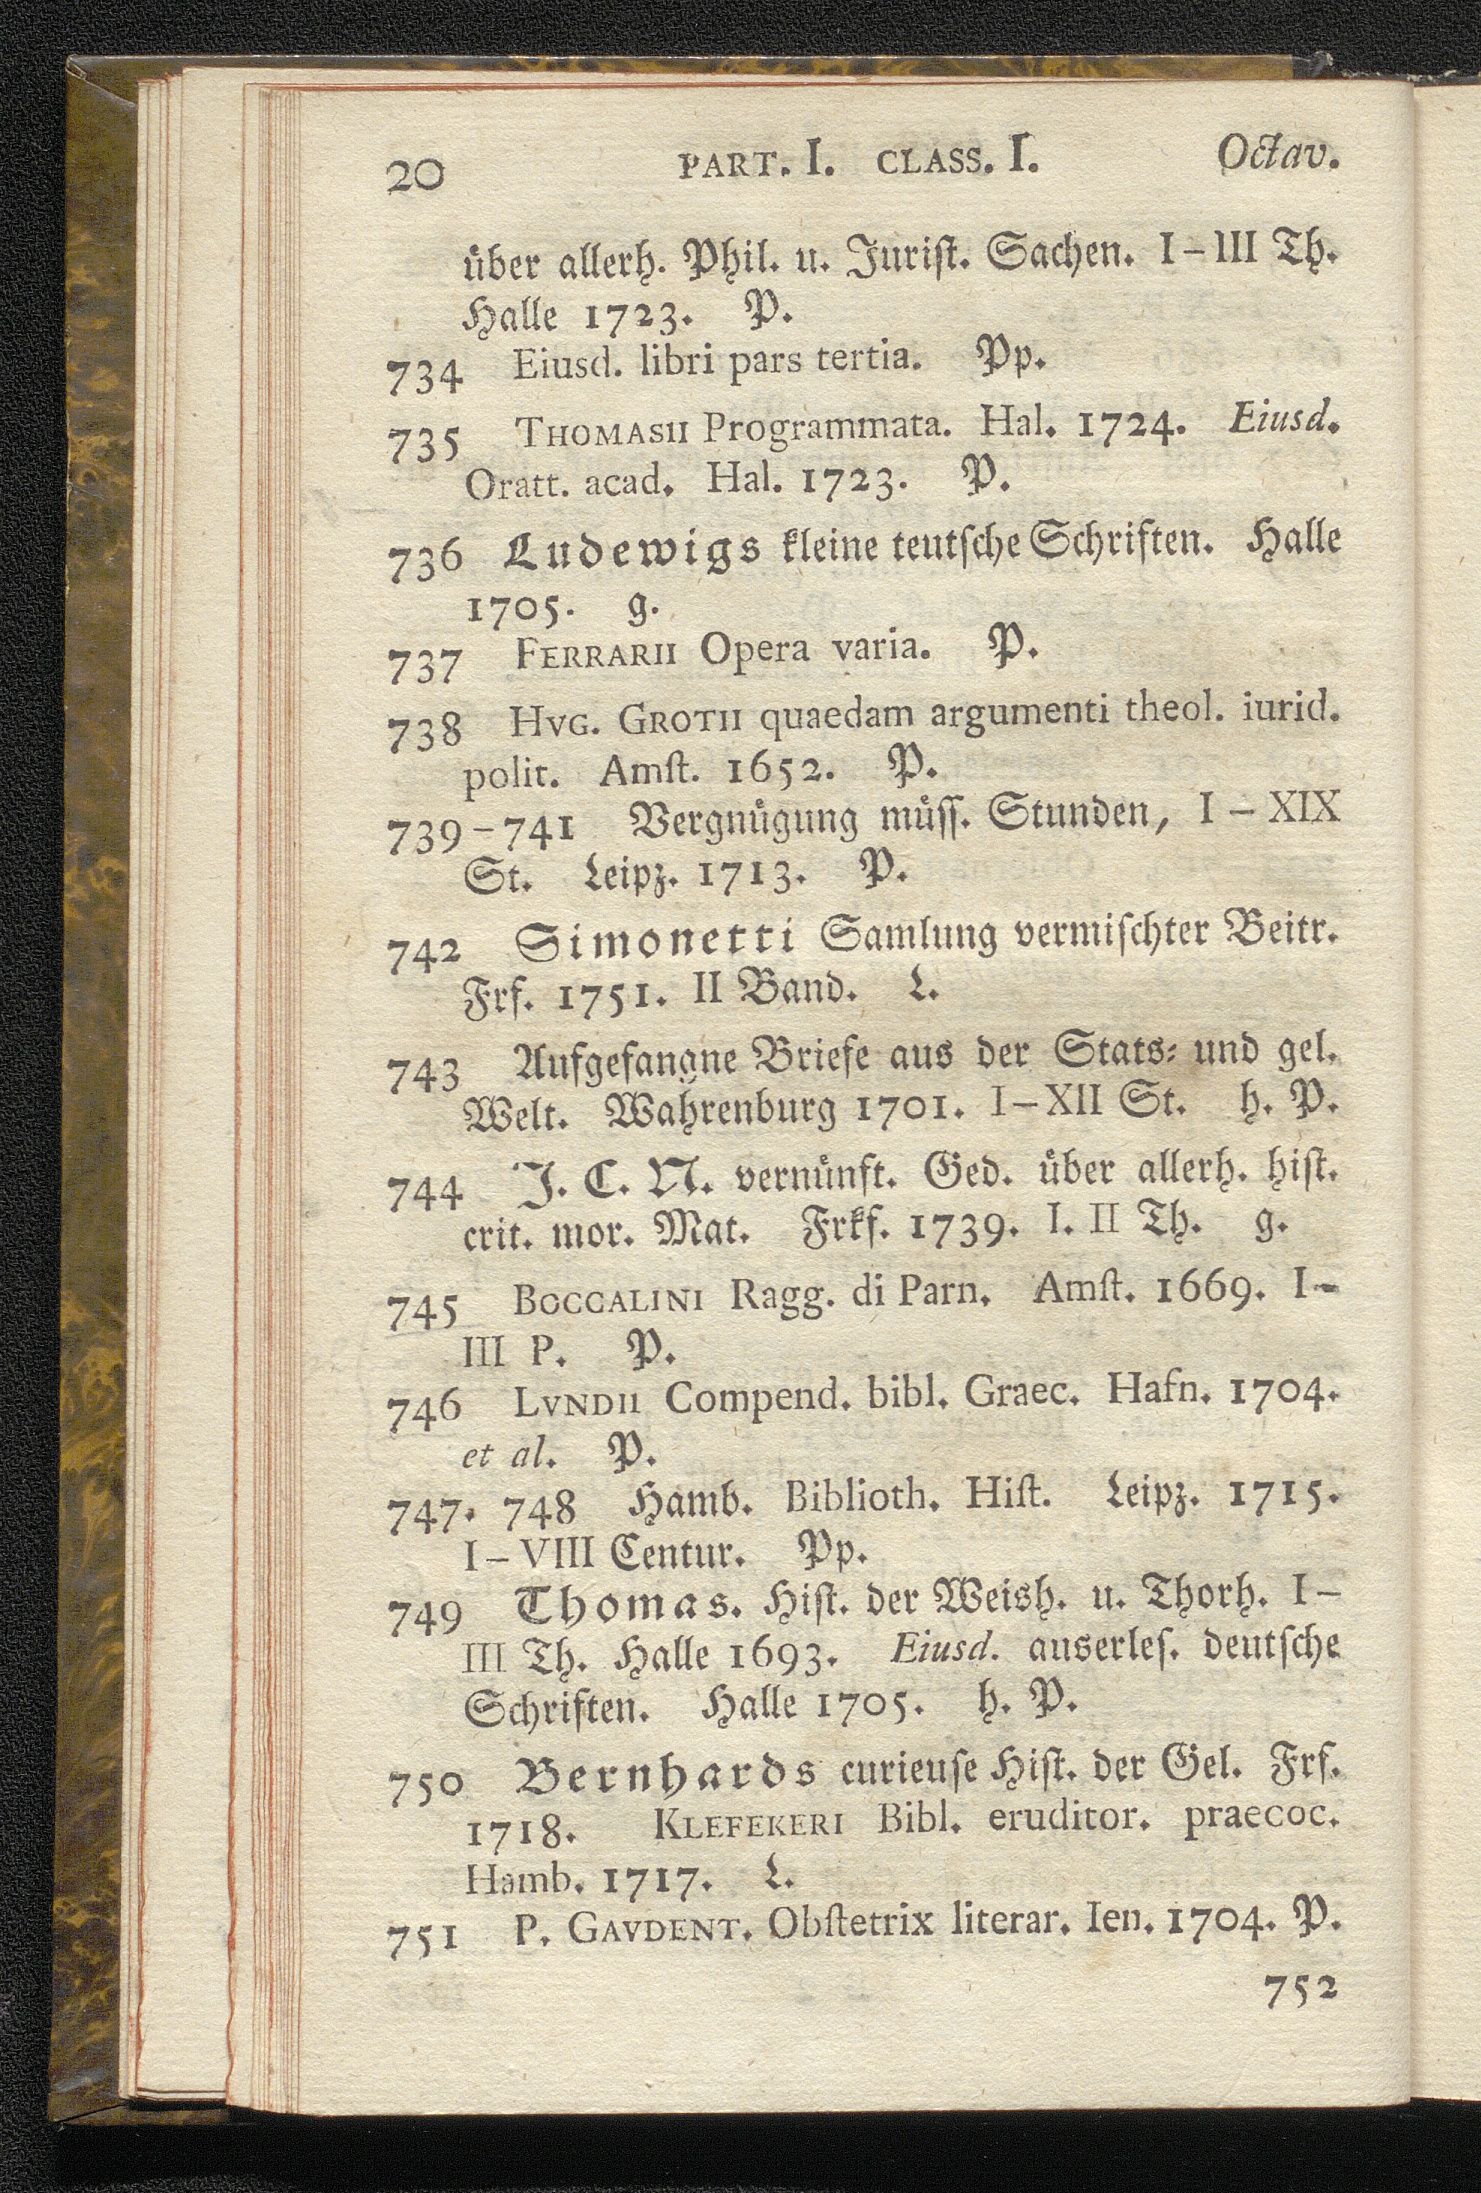 20 PART. I. CLASS. I. Octav.
über allerh. Phil. u. Jurist. Sachen. I-III Th.
Halle 1723. P.
734 Eiusd. libri pars tertia. Pp.
735 THOMASII Programmata. Hal. 1724. Eiusd.
Oratt. acad. Hal. 1723. P.
736 Ludewigs kleine teutsche Schriften. Halle
1705. g.
737 FERRARII Opera varia. P.
738 HVG. GROTII quaedam argumenti theol. iurid.
polit. Amst. 1652. P.
739-741 Vergnügung müss. Stunden, I-XIX
St. Leipz. 1713. P.
742 Simonetti Samlung vermischter Beitr.
Frf. 1751. II Band. L.
743 Aufgefangne Briefe aus der Stats- und gel.
Welt. Wahrenburg 1701. I-XII St. h. P.
744 J. C. N. vernünft. Ged. über allerh. hist.
crit. mor. Mat. Frkf. 1739. I. II Th. g.
745 BOCCALINI Ragg. di Parn. Amst. 1669. I-
III P. P.
746 LVNDII Compend. bibl. Graec. Hafn. 1704.
et al. P.
747. 748 Hamb. Biblioth. Hist. Leipz. 1715.
I-VIII Centur. Pp.
749 Thomas. Hist. der Weish. u. Thorh. I-
III Th. Halle 1693. Eiusd. auserles. deutsche
Schriften. Halle 1705. h. P.
750 Bernhards curieuse Hist. der Gel. Frf.
1718. KLEFEKERI Bibl. eruditor. praecoc.
Hamb. 1717. L.
751 P. GAVDENT. Obstetrix literar. Ien. 1704. P.
752